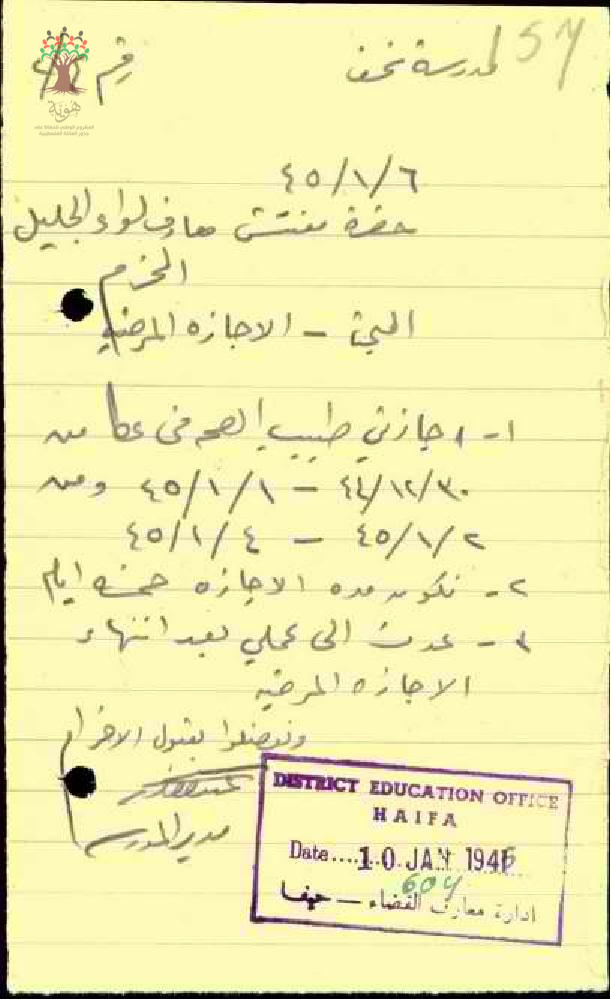 57
مدرسة نحف
رقم
٤٥/١/٦
حضرة مفتش معارف لواء الجليل
المحترم
المبحث - الاجازه المرضيه
١- اجازني طبيب الصحه في عكا من
٤٤/١٢/٣٠ - ٤٥/١/١ ومن
٤٥/١/٢ - ٤٥/١/٤
٢- تكون مده الاجازه خمسة ايام
٣- عدت الى عملي بعد انتهاء
الاجازه المرضيه
وتفضلوا بقبول الاحترام
مدير المدرسه
DISTRICT EDUCATION OFFICE
HAIFA
Date....10 JAN 1945
604
ادارة معارف القضاء — حيفا
هوية